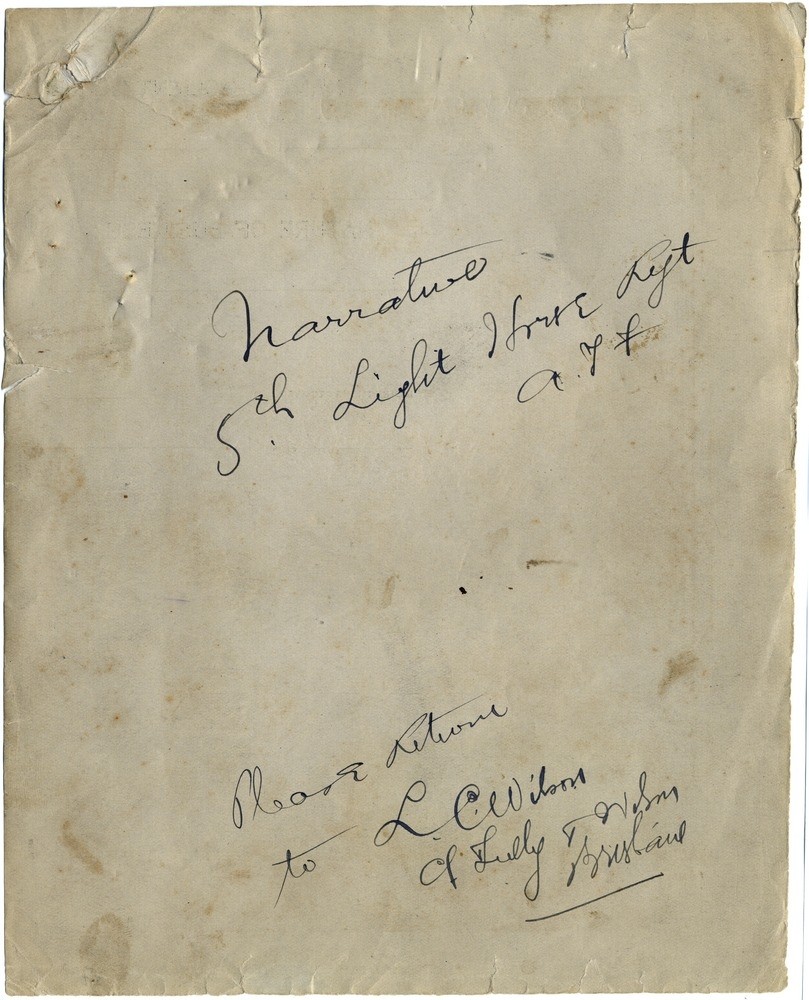 Narrative
5th Light Horse Regt
A.I.F
Please Return
to L. C. Wilson
c/- Feilly & Wilson
Brisbane